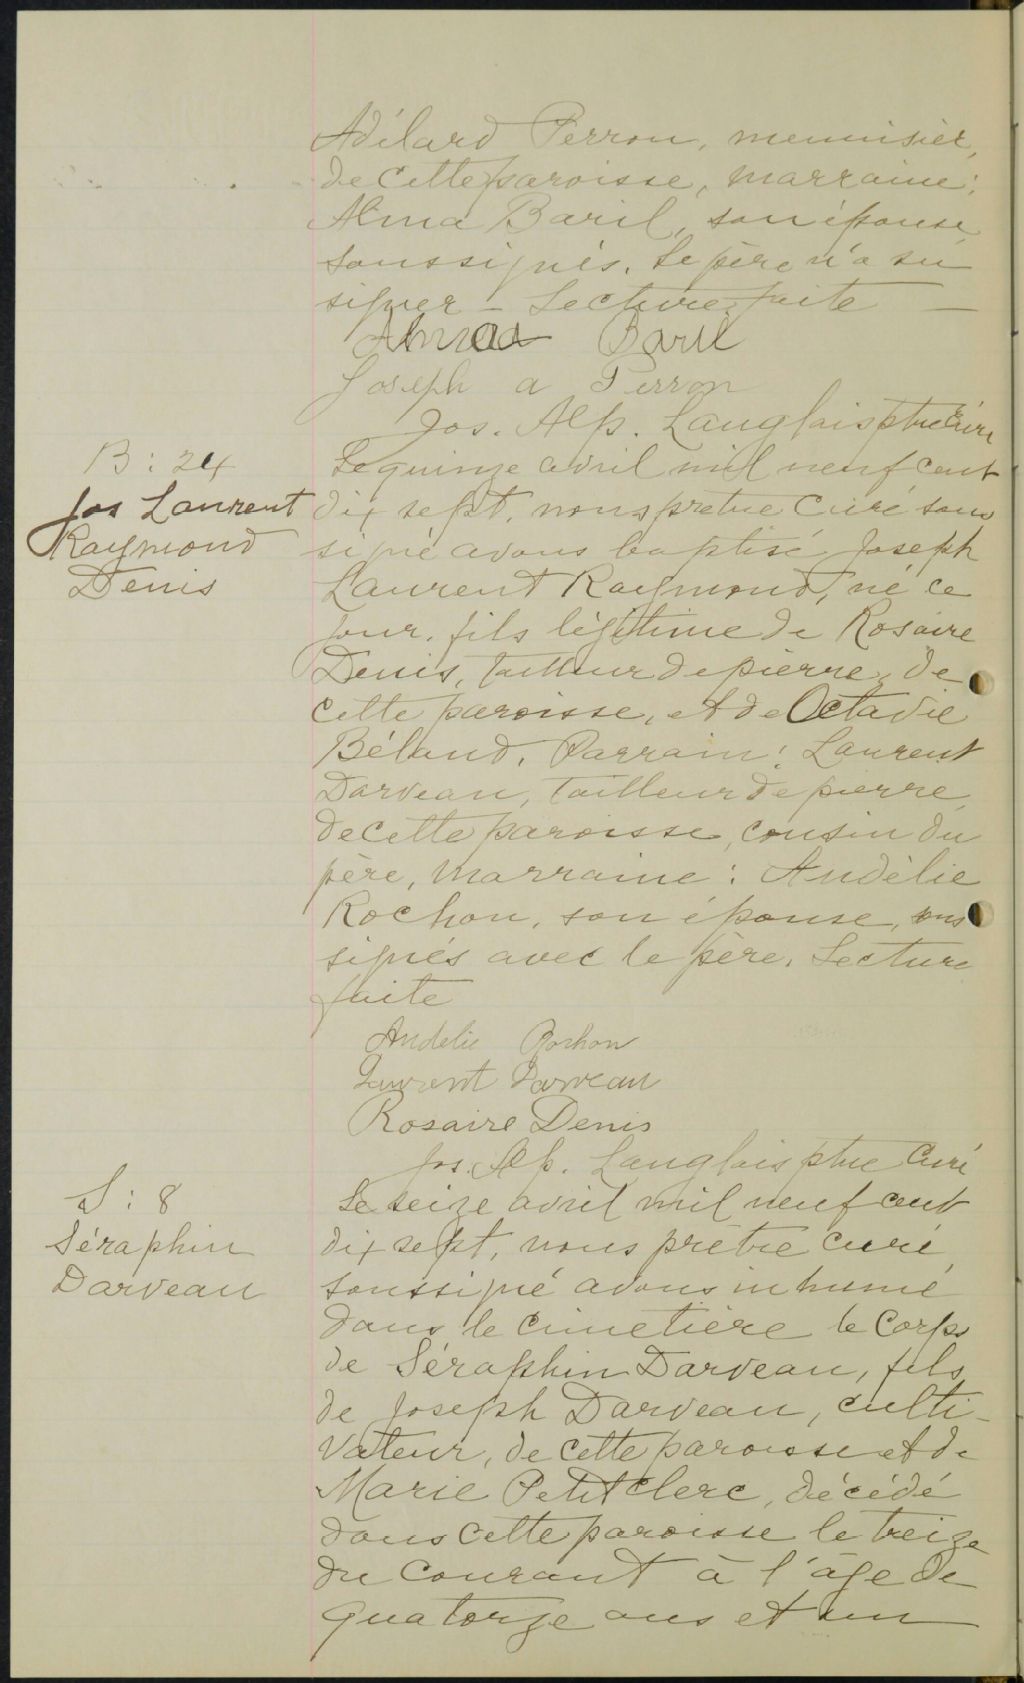 Adélard Perron, menuisier,
de cette paroisse, marraine:
Alma Baril, son épouse
soussignés. Le père n'a su
signer — Lecture faite —
Alma Baril
Joseph a Perron
Jos. Alp. Langlais ptre Curé
B: 24
Jos Laurent
Raymond
Denis
Le quinze avril mil neuf cent
dix sept, nous prêtre Curé sous
signé avons baptisé Joseph
Laurent Raymond, né ce
jour, fils légitime de Rosaire
Denis, tailleur de pierre, de
cette paroisse, et de Octavie
Béland. Parrain: Laurent
Darveau, tailleur de pierre,
de cette paroisse, cousin du
père, marraine: Andélie
Rochon, son épouse, sous
signés avec le père. Lecture
faite
Andelie Rochon
Laurent Darveau
Rosaire Denis
Jos. Alp. Langlais ptre Curé
S: 8
Séraphin
Darveau
Le seize avril mil neuf cent
dix sept, nous prêtre curé
soussigné avons inhumé
dans le cimetière le corps
de Séraphin Darveau, fils
de Joseph Darveau, culti-
vateur, de cette paroisse et de
Marie Petitclerc, décédé
dans cette paroisse le treize
du courant à l'âge de
quatorze ans et un